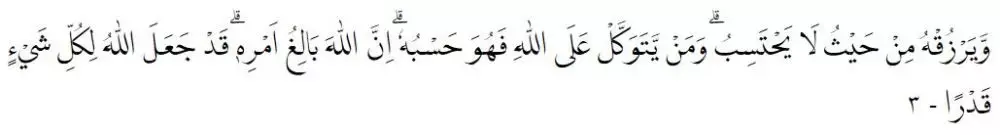 وَّيَرْزُقْهُ مِنْ حَيْثُ لَا يَحْتَسِبُۗ وَمَنْ يَّتَوَكَّلْ عَلَى اللّٰهِ فَهُوَ حَسْبُهٗۗ اِنَّ اللّٰهَ بَالِغُ اَمْرِهٖۗ قَدْ جَعَلَ اللّٰهُ لِكُلِّ شَيْءٍ
قَدْرًا - ٣